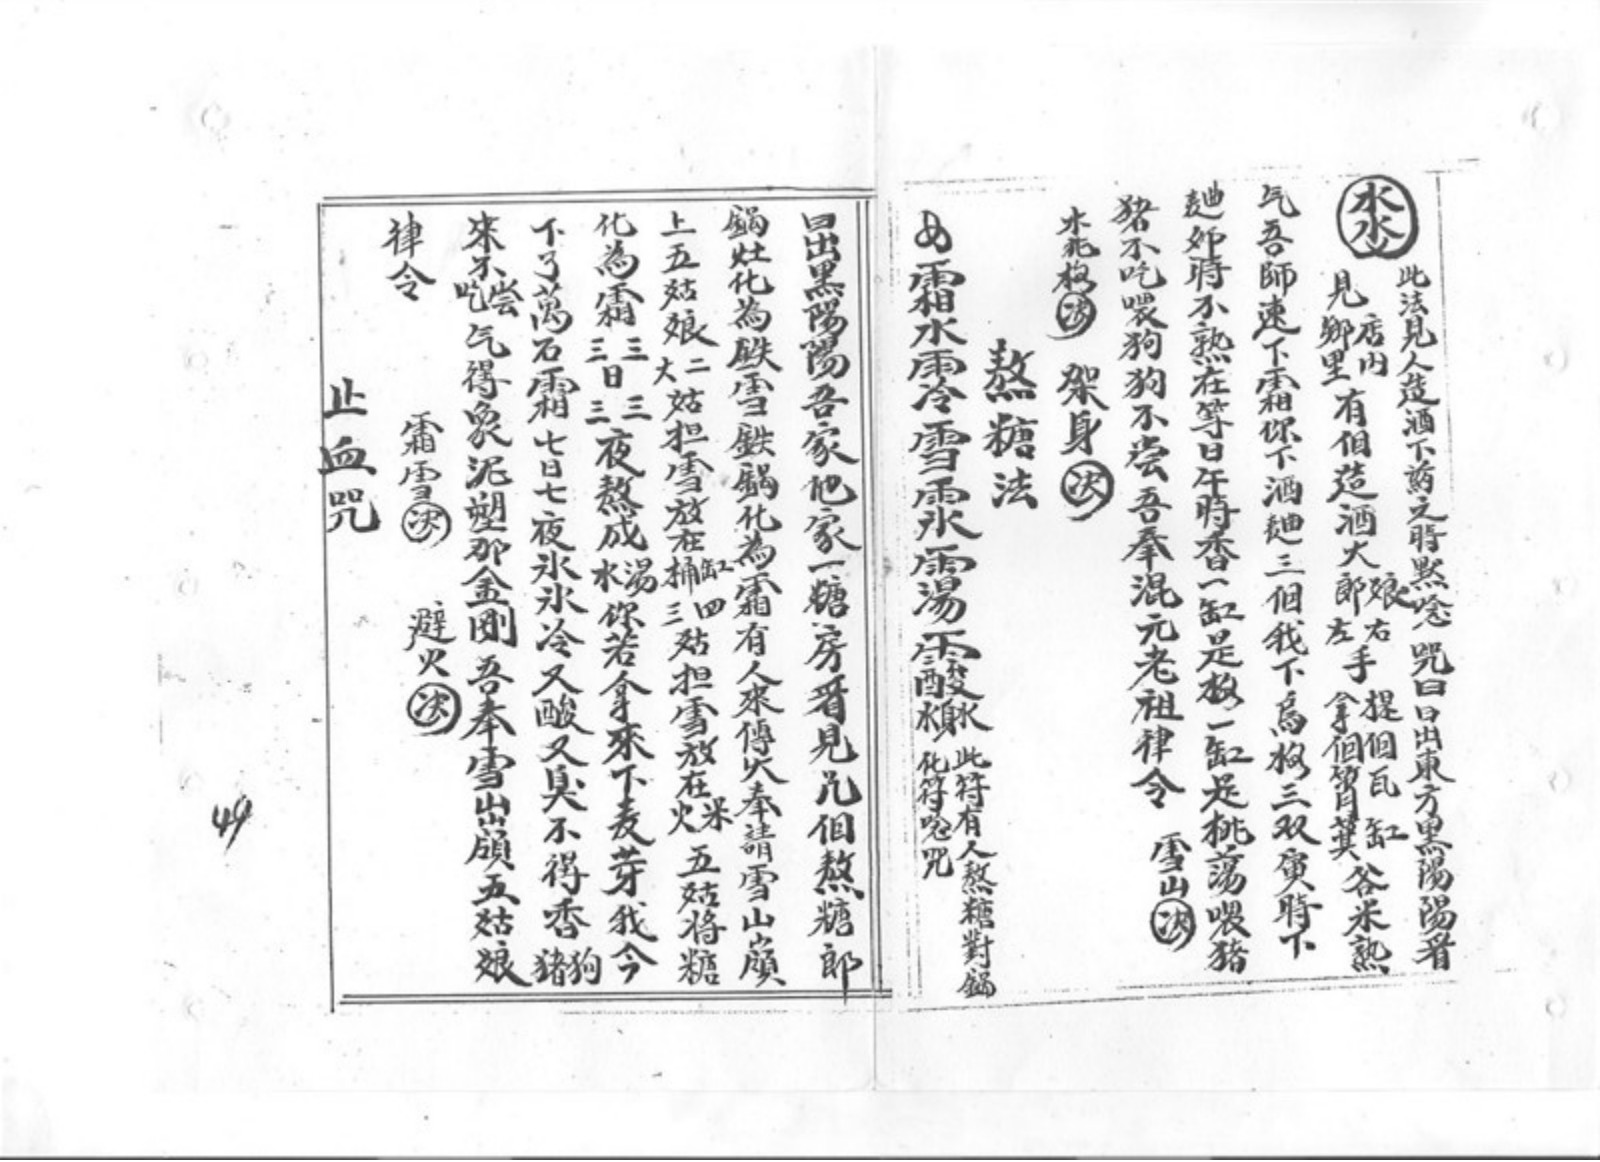 水水
此法見人造酒下药之時默念 咒曰日出東方黑陽陽看
見鄉里店内有個造酒大郎娘左右手拿個筲箕提個瓦缸谷米熟
气吾師速下霜你下酒麯三個我下烏梅三双寅時下
麯卯時不熟在等日午時香一缸是梅一缸是桃蕩喂猪
猪不吃喂狗狗不嘗吾奉混元老祖律令 雪山決
水 決 架身 決
熬糖法
霜水雨冷雪 湯 此符有人熬糖對鍋
化符唸咒
日出黑陽陽吾家他家一糖房看見几個熬糖郎
鍋灶化為鉄雪鉄鍋化為霜有人來傳火奉請雪山嶺
上五姑娘大二姑担雪放在桶缸三四姑担雪放在火米五姑將糖
化為霜三日三三夜三熬成水湯你若拿來下麦芽我今
下了萬石霜七日七夜氷氷冷又酸又臭不得香猪狗
來不吃嘗气得象泥塑那金剛吾奉雪山嶺五姑娘
律令 霜雪決 避火決
止血咒
49